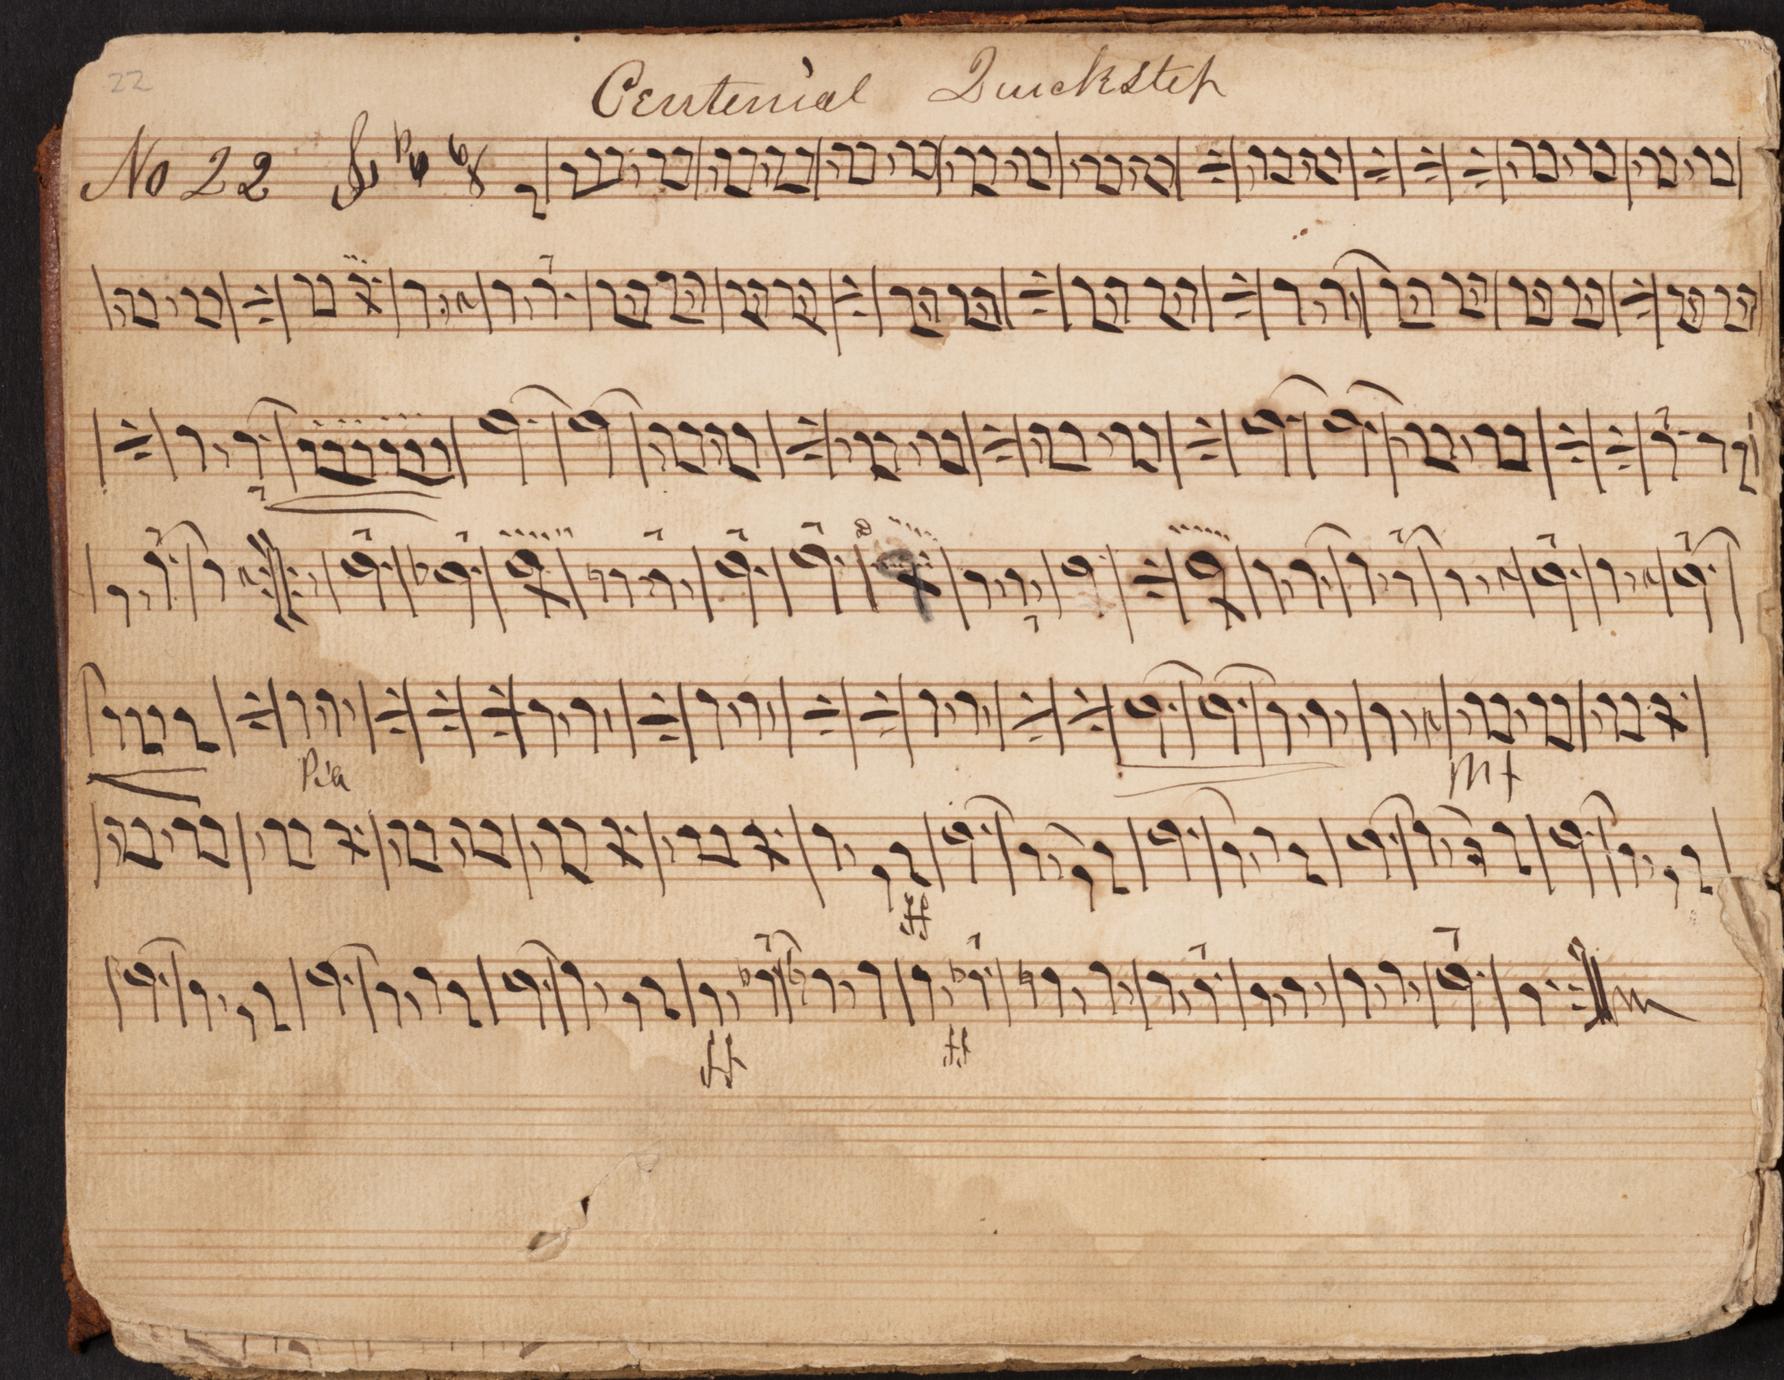 22
Centenial Quickstep
No 22
Pia
Mf
ff
ff
ff